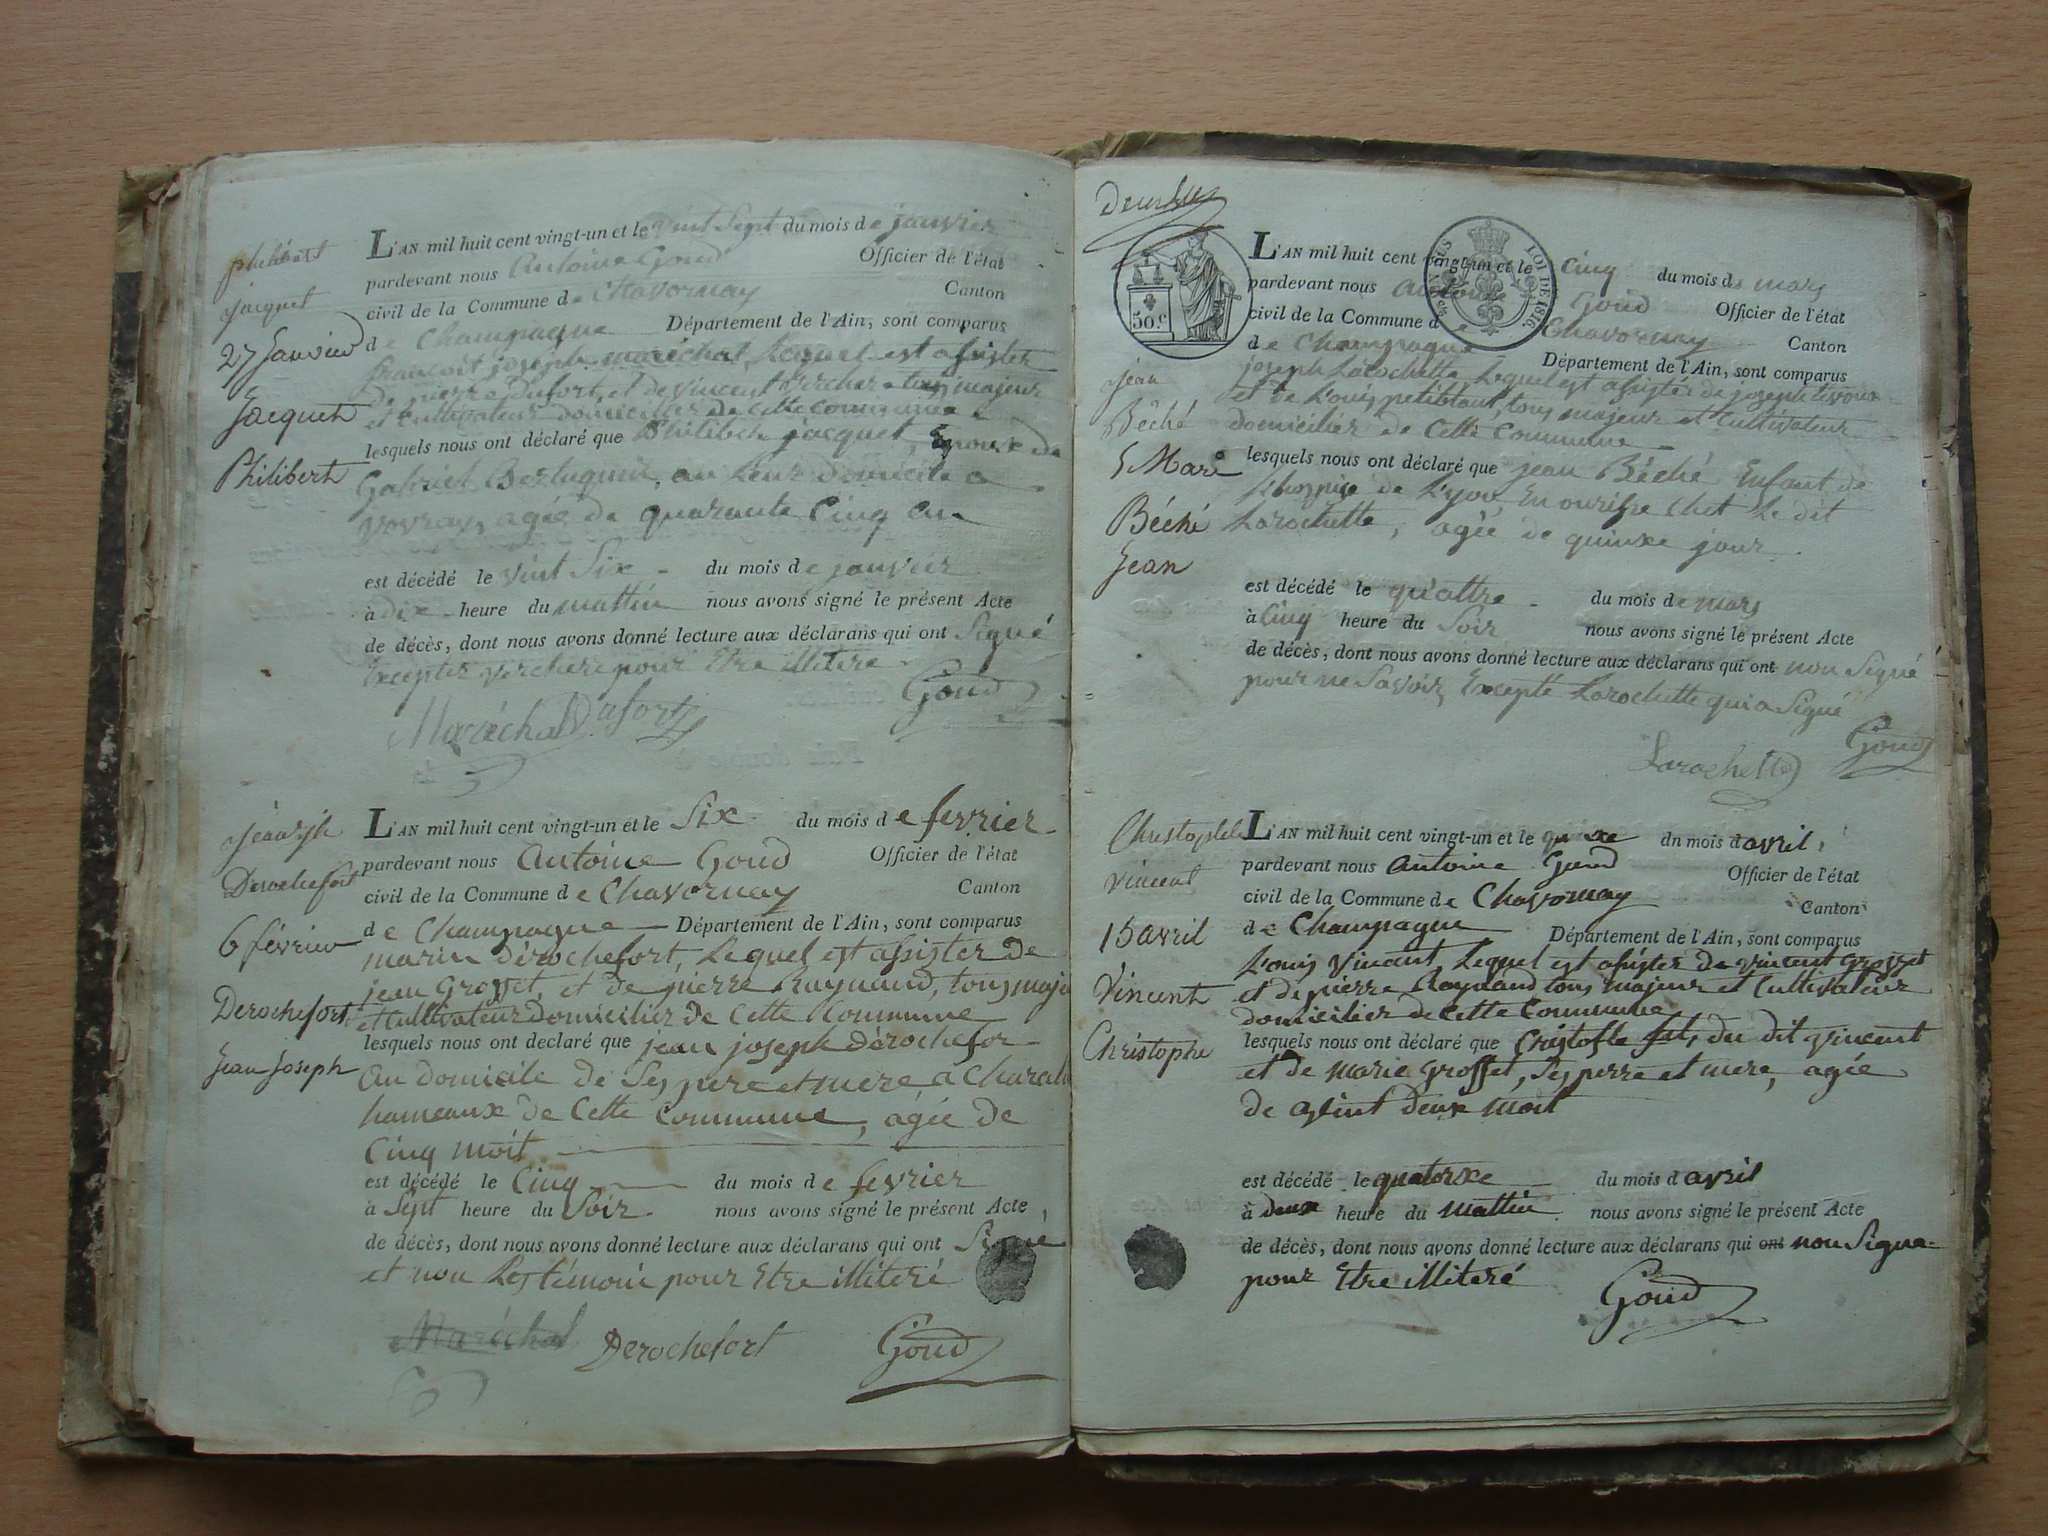 philibert
jacquet
27 Janvier
Jacquet
Philibert
L'AN mil huit cent vingt-un et le vint Sept du mois de janvier
pardevant nous Antoine Goud Officier de l'état
civil de la Commune de Chavornay Canton
de Champagne Département de l'Ain, sont comparus
françoit joseph maréchal, Lequel est assister
de pierre Dufort, et de vincent vercher tous majeur
et cultivateur domicilier de cette commune
lesquels nous ont déclaré que Philibert jacquet, Epouse de
Gabriel au Leur domicile a
vovray, agée de quarante Cinq an
est décédé le vint Six du mois de janvier
à dix heure du mattin nous avons signé le présent Acte
de décès, dont nous avons donné lecture aux déclarans qui ont Signé
Excepter verchere pour Etre illitere
Maréchal Dufort Goud
jean jh
Derochefort
6 février
Derochefort
Jean Joseph
L'AN mil huit cent vingt-un et le Six du mois de fevrier
pardevant nous Antoine Goud Officier de l'état
civil de la Commune de Chavornay Canton
de Champagne Département de l'Ain, sont comparus
marin dérochefort, Lequel est assister de
jean Grosset, et de pierre Raynaud, tous maje
et cultivateur domicilier de Cette Commune
lesquels nous ont declaré que jean joseph dérochefor
au domicile de Ses pere et mere a
hameaux de Cette Commune, agée de
Cinq moit
est décédé le Cinq du mois de fevrier
à Sept heure du Soir nous avons signé le présent Acte,
de décès, dont nous avons donné lecture aux déclarans qui ont Signé
et non Les témoin pour Etre illiteré
Maréchal Derochefort Goud
LOI DE 1816.
50.c
jean
Béché
5 Mars
Béché
Jean
L'AN mil huit cent vingt-un et le Cinq du mois de mars
pardevant nous Antoine Goud Officier de l'état
civil de la Commune de Chavornay Canton
de Champagne Département de l'Ain, sont comparus
joseph Larochette Lequel est assistée de joseph
et de Louis petitblant, tous majeur et Cultivateur
domicilier de Cette Commune
lesquels nous ont déclaré que jean Béché Enfant de
L'hospise de Lyon, En ourisse Chet Le dit
Larochette, agée de quinxe jour.
est décédé le quattre du mois de mars
à Cinq heure du Soir nous avons signé le présent Acte
de décès, dont nous avons donné lecture aux déclarans qui ont non Signé
pour ne Savoir, Excepté Larochette qui a Signé
Larochette Goud
Christophle
vincent
15 avril
Vincent
Christophe
L'AN mil huit cent vingt-un et le quinxe dn mois d avril,
pardevant nous Antoine Goud Officier de l'état
civil de la Commune de Chavornay Canton
de Champagne Département de l'Ain, sont comparus
Louis Vincent, Lequel est assister de vincent grosset
et de pierre Raynaud tous majeur et Cultivateur
domicilier de Cette Commune
lesquels nous ont déclaré que Cristofle fils, du dit vincent
et de marie grosset, Ses perre et mere, agée
de deux moit
est décédé le quatorxe du mois d avril
à deux heure du mattin nous avons signé le présent Acte
de décès, dont nous avons donné lecture aux déclarans qui ont non Signe
pour Etre illiteré
Goud